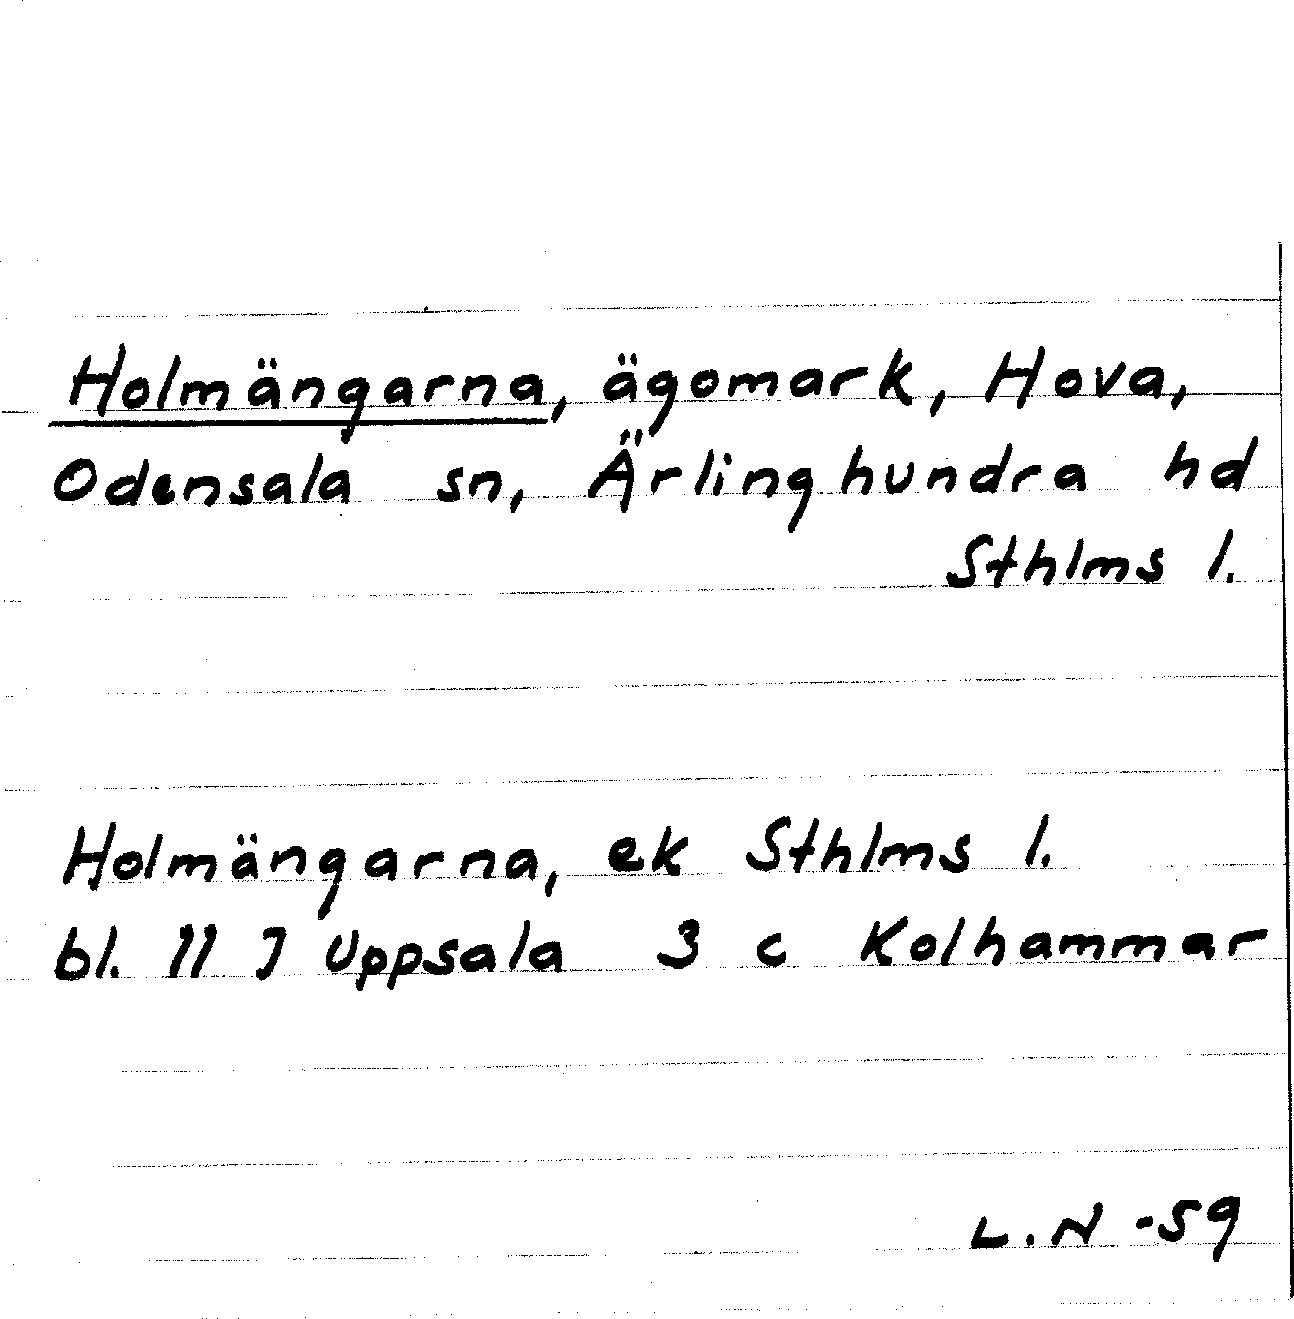 Holmängarna, ägomark, Hova,
Odensala sn, Ärlinghundra hd
Sthlms l.
Holmängarna, ek Sthlms l.
bl. 11 J Uppsala 3 c Kolhammar
L.N -59